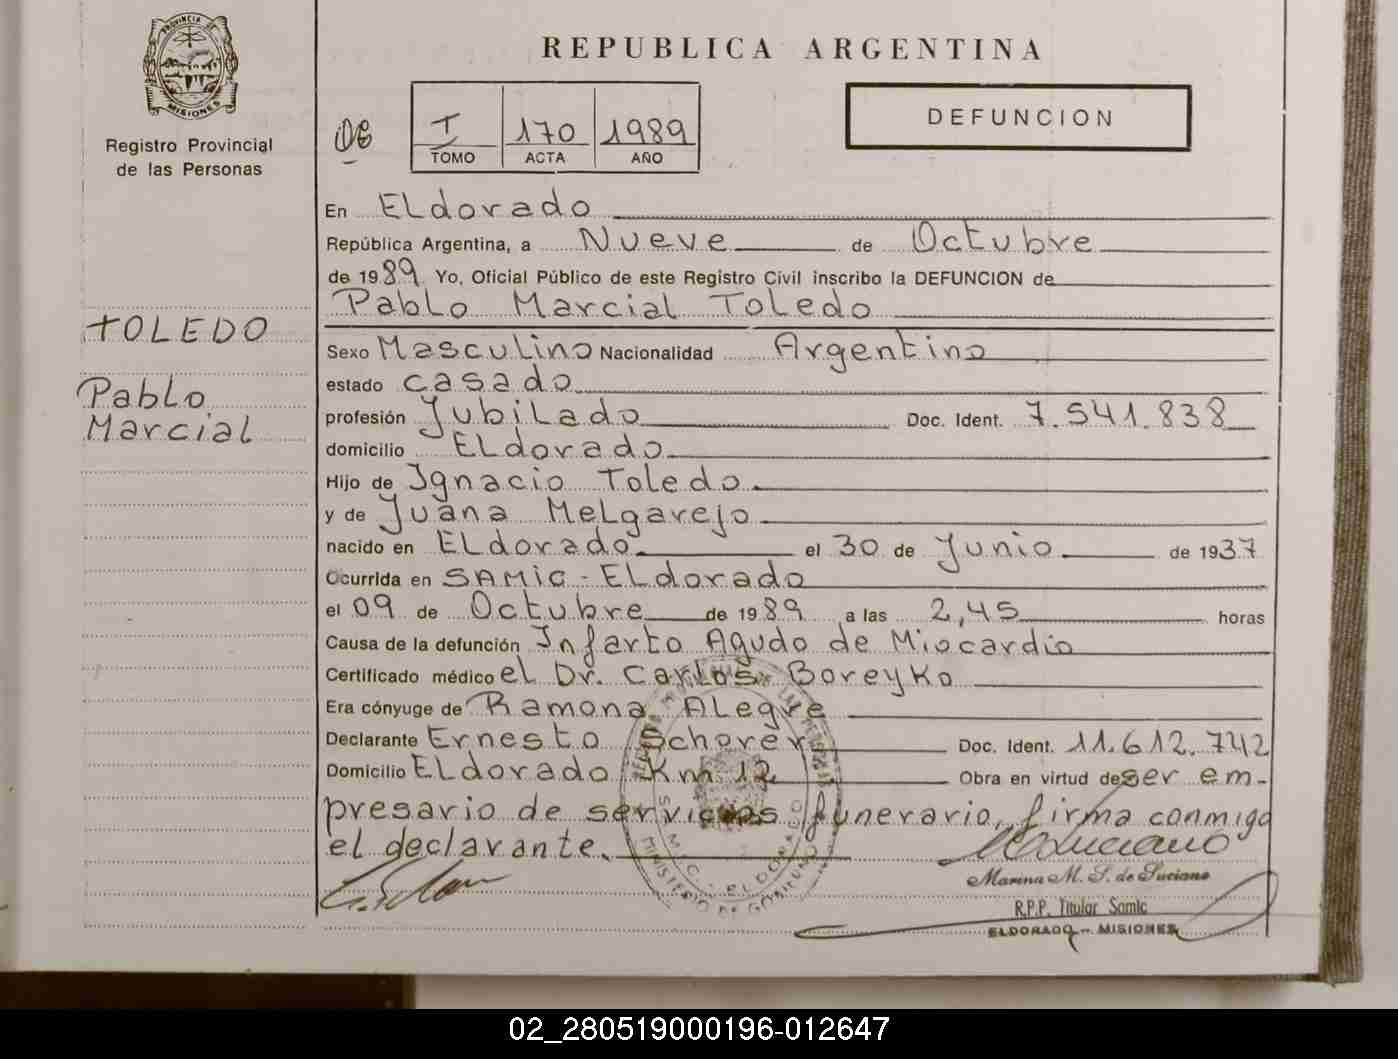 PROVINCIA DE
MISIONES
Registro Provincial
de las Personas
TOLEDO
Pablo
Marcial
REPUBLICA ARGENTINA
I 170 1989
TOMO ACTA AÑO
DEFUNCION
En Eldorado
República Argentina, a Nueve de Octubre
de 1989 Yo, Oficial Público de este Registro Civil inscribo la DEFUNCION de
Pablo Marcial Toledo
Sexo Masculino Nacionalidad Argentino
estado casado
profesión Jubilado Doc. Ident. 7.541.838
domicilio Eldorado
Hijo de Ignacio Toledo
y de Juana Melgarejo
nacido en Eldorado el 30 de Junio de 1937
Ocurrida en SAMIC - Eldorado
el 09 de Octubre de 1989 a las 2,45 horas
Causa de la defunción Infarto Agudo de Miocardio
Certificado médico el Dr. Carlos Boreyko
Era cónyuge de Ramona Alegre
Declarante Ernesto Schorer Doc. Ident. 11.612.742
Domicilio Eldorado Km 12 Obra en virtud de ser em-
presario de servicios funerario, firma conmigo
el declarante.
Marina M. S. de Luciano
R.P.P. Titular Samic
ELDORADO - MISIONES
02_280519000196-012647